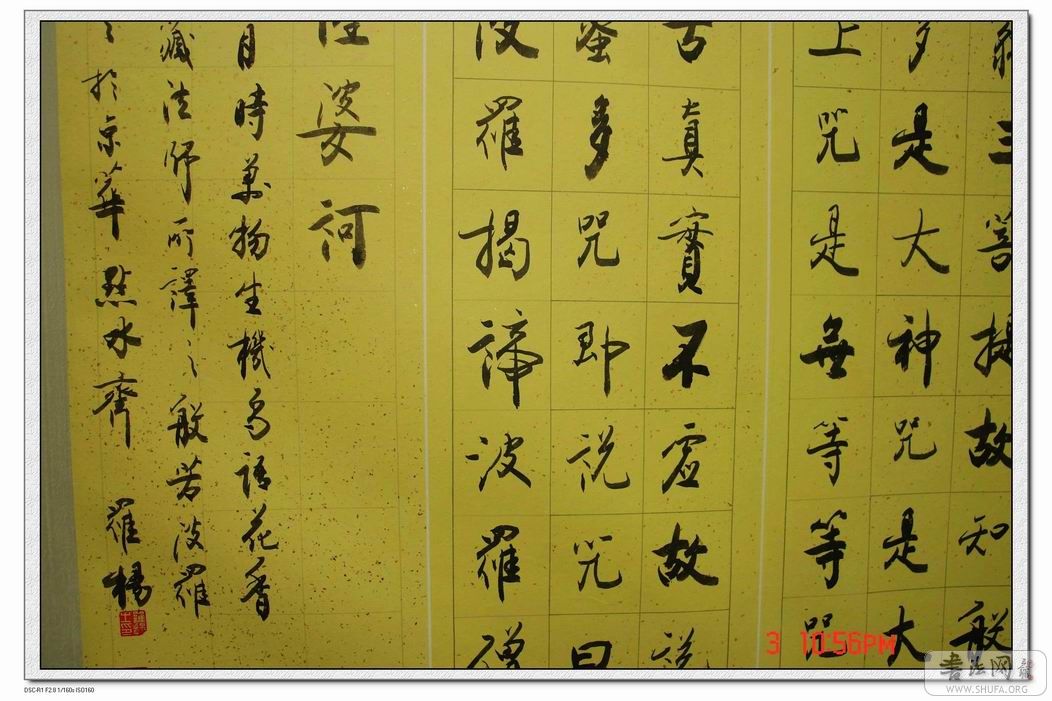 三菩提故知般
多是大神咒是大
上咒是無等等咒
古真實不虛故說
蜜多咒即說咒曰
波羅揭諦波羅僧
婆訶
月時萬物生機鳥語花香
藏法師所譯之般若波羅
於京華點水齋 羅楊
3 10:56PM
书法网
WWW.SHUFA.ORG
DSC-R1 F2.8 1/160s ISO160